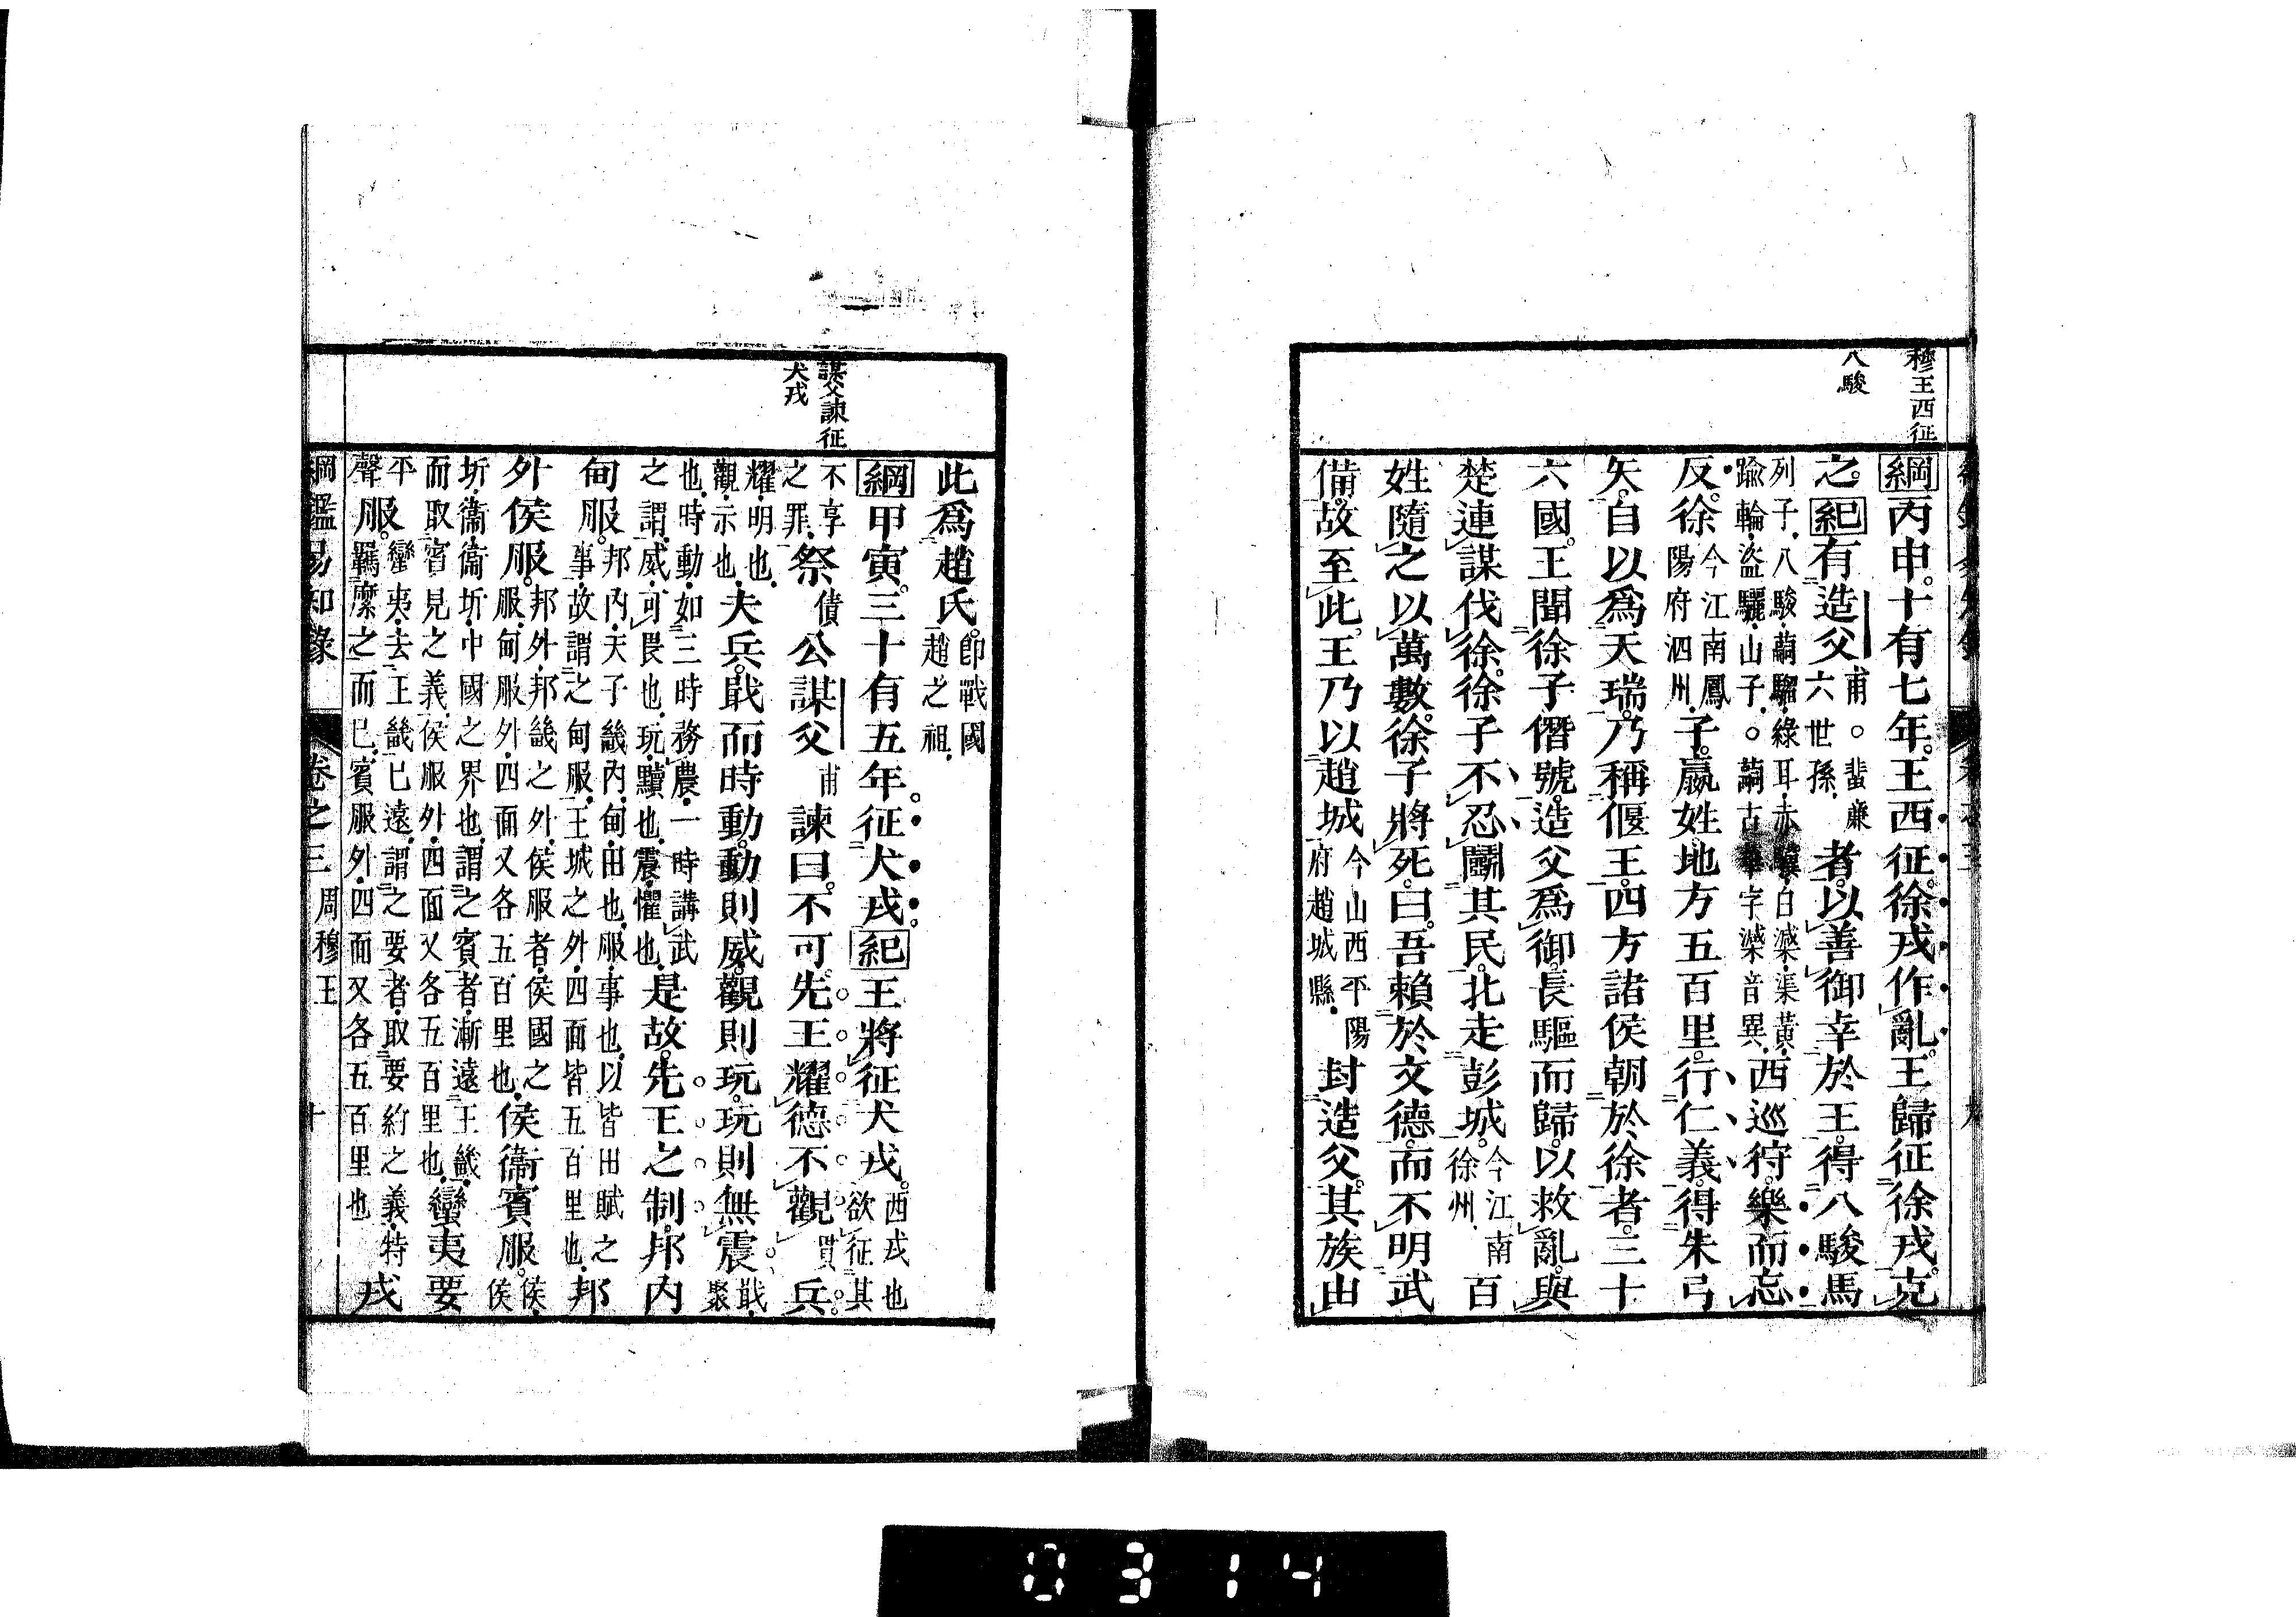 穆王西征
八駿
綱丙申。十有七年。王西征。徐戎作亂。王歸征徐戎。克
之。紀有造父甫。蜚廉六世孫。者。以善御幸於王。得八駿馬
列子、八駿、䮐騮、綠耳、赤驥、白㶕、渠黃、踰輪、盜驪、山子。○䮐古華字㶕音異。西巡狩。樂而忘
反。徐今江南鳳陽府泗州。子。嬴姓。地方五百里。行仁義。得朱弓
矢。自以爲天瑞。乃稱偃王。四方諸侯朝於徐者。三十
六國。王聞徐子僭號。造父爲御。長驅而歸。以救亂。與
楚連謀伐徐。徐子不忍鬭其民。北走彭城。今江南徐州。百
姓隨之以萬數。徐子將死。曰。吾賴於文德。而不明武
備。故至此。王乃以趙城今山西平陽府趙城縣。封造父。其族由
謀父諫征
犬戎
此爲趙氏。卽戰國趙之祖。
綱甲寅。三十有五年。征犬戎。紀王將征犬戎。西戎也欲征其
不享之罪。祭債公謀父甫諫曰。不可。先王耀德不觀貫兵。
耀、明也、觀、示也。夫兵。戢而時動。動則威。觀則玩。玩則無震。戢、聚
也、時動、如三時務農、一時講武之謂、威、可畏也、玩、黷也、震、懼也。是故。先王之制。邦內
甸服。邦內、天子畿內、甸、田也、服、事也、以皆田賦之事、故謂之甸服、王城之外、四面皆五百里也。邦
外侯服。邦外、邦畿之外、侯服者、侯國之服、甸服外、四面又各五百里也。侯衞賓服。侯、侯
圻、衞、衞圻、中國之界也、謂之賓者、漸遠王畿、而取賓見之義、侯服外、四面又各五百里也。蠻夷要
平聲服。蠻夷、去王畿已遠、謂之要者、取要約之義、特羈縻之而已、賓服外、四面又各五百里也戎
綱鑑易知錄 卷之三 周穆王 十
0314